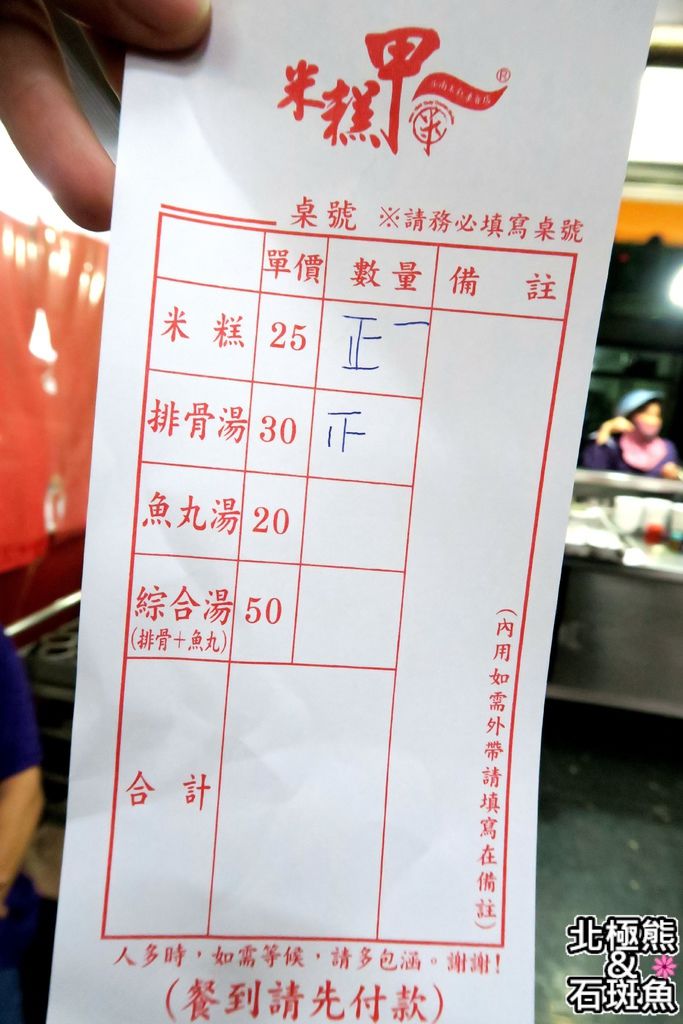 米糕甲
®
桌號 ※請務必填寫桌號
單價 數量 備註
米糕 25 正一
排骨湯 30
魚丸湯 20
綜合湯 50
(排骨+魚丸)
合計
(內用如需外帶請填寫在備註)
人多時，如需等候，請多包涵。謝謝！
(餐到請先付款)
北極熊
&
石斑魚